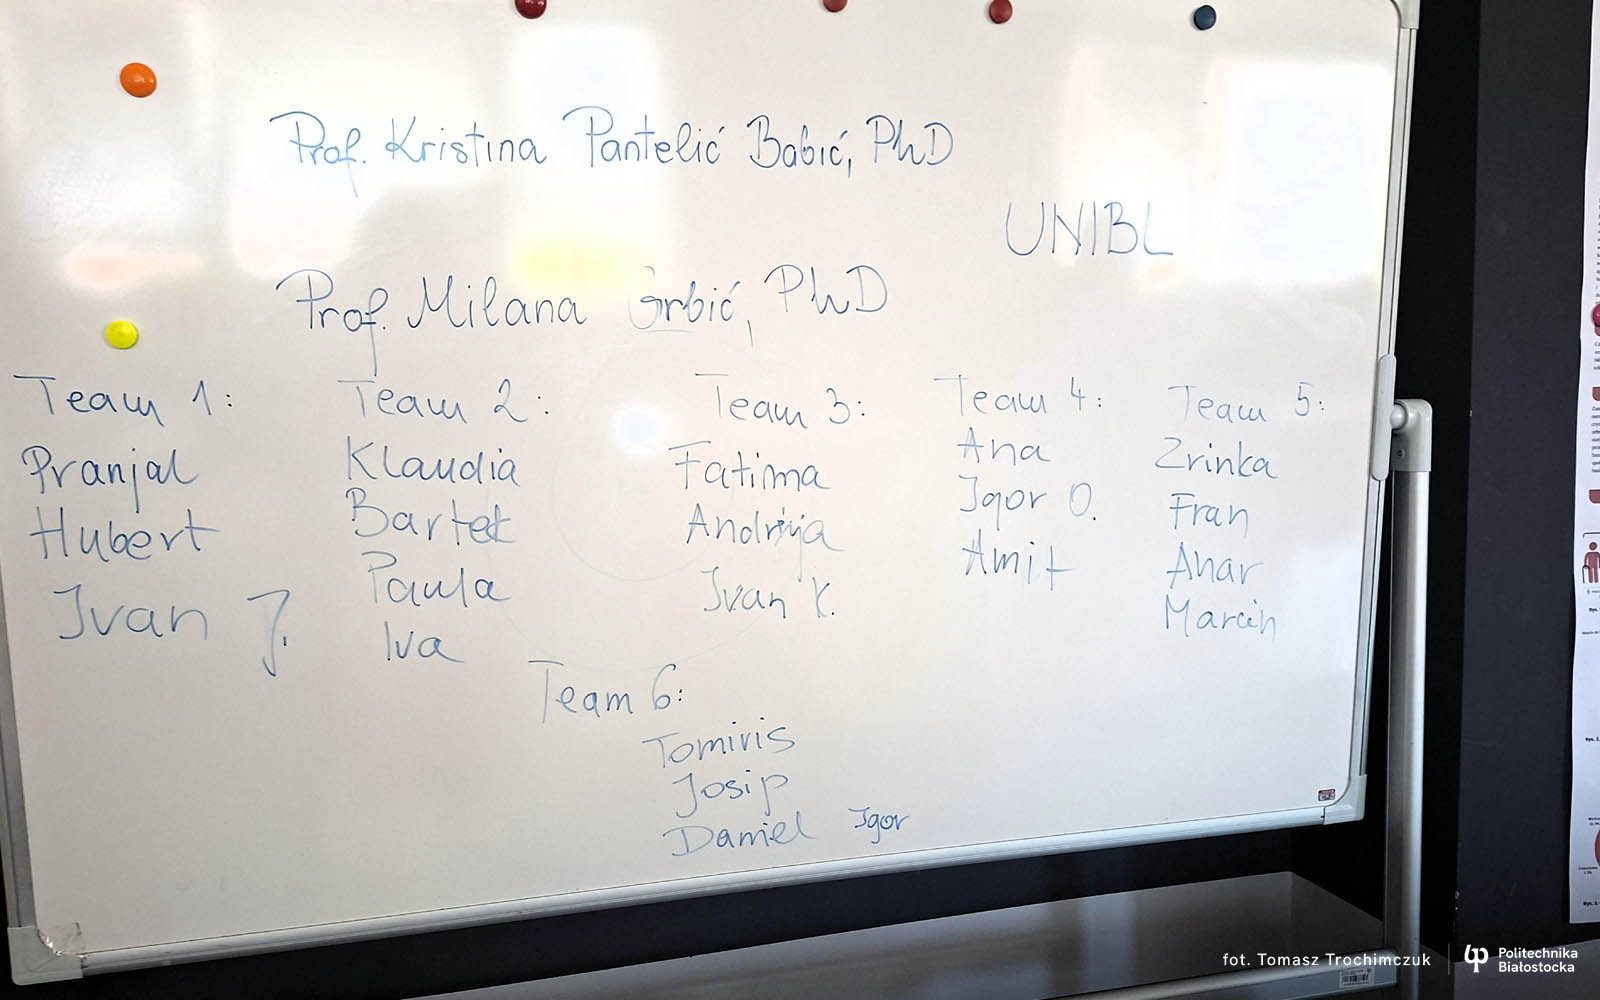 Prof. Kristina Pantelić Babić, PhD
UNIBL
Prof. Milana Grbić, PhD
Team 1:
Pranjal
Hubert
Ivan J.
Team 2:
Klaudia
Bartek
Paula
Iva
Team 3:
Fatima
Andrija
Ivan K.
Team 4:
Ana
Igor O.
Amit
Team 5:
Zrinka
Fran
Anar
Marcin
Team 6:
Tomiris
Josip
Daniel Igor
fot. Tomasz Trochimczuk
Politechnika
Białostocka